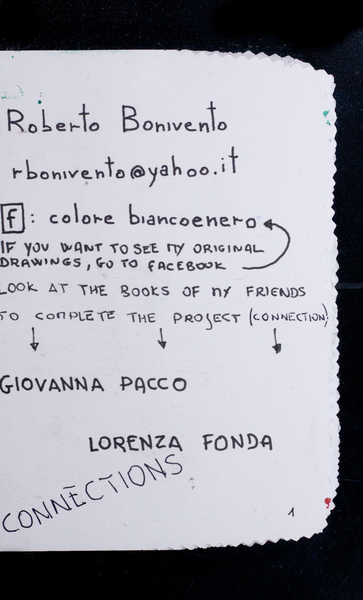 Roberto Bonivento
rbonivento@yahoo.it
f: colore biancoenero
IF YOU WANT TO SEE MY ORIGINAL
DRAWINGS, GO TO FACEBOOK
LOOK AT THE BOOKS OF MY FRIENDS
TO COMPLETE THE PROJECT (CONNECTION)
GIOVANNA PACCO
LORENZA FONDA
CONNECTIONS
1